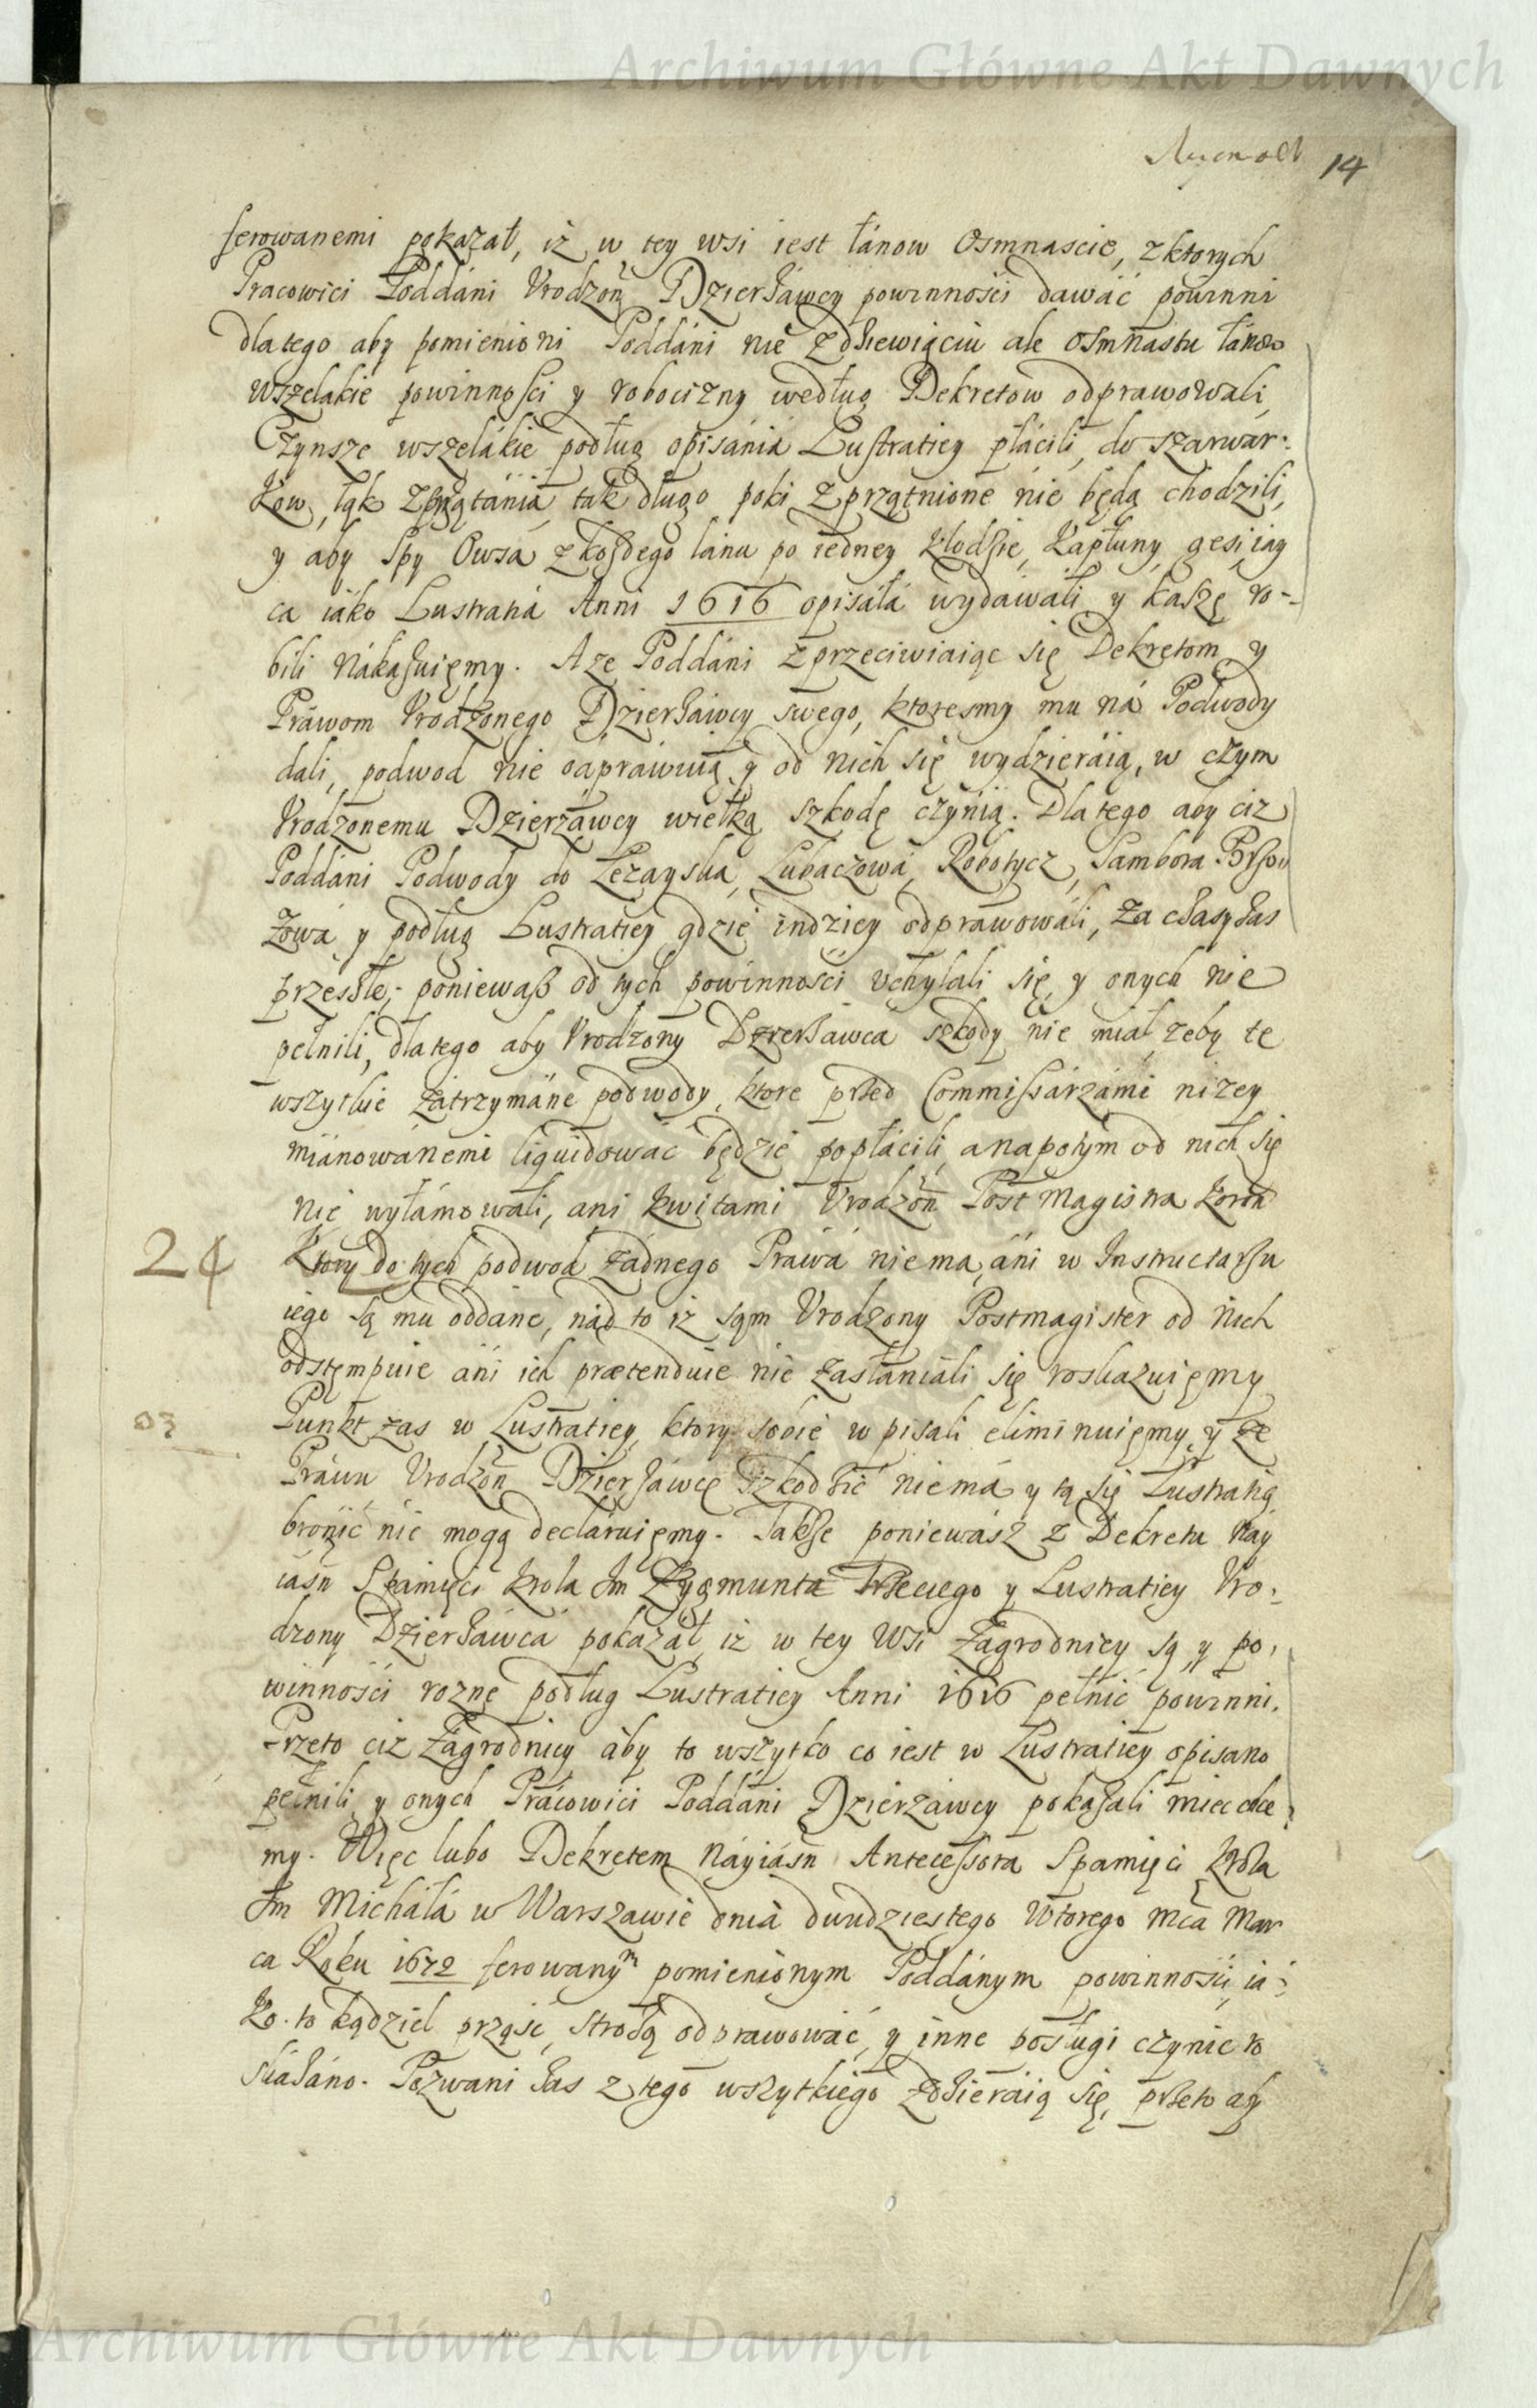 Archiwum Główne Akt Dawnych
14
ferowanemi pokazał, iż w tey wsi iest łánow Osmnascie, z ktorych
Pracowici Poddáni Vrodzoñ Dzierżáwcy powinnośći dawáć powinni
dlatego aby pomienioni Poddáni nie z dziewiąciu ale Osmnastu łánow
wszelákie powinnośći y robocizny według Dekretow odprawowali,
Czynsze wszelákie podług opisánia Lustratiey płácili, do szarwar:
kow, łąk zprzątánia, tak długo poki zprzątnione nie będą chodzili,
y aby Spy Owsá z kożdego łánu po iedney kłodzie, kapłuny, gęsi, iay
ca iáko Lustratia Anni 1616 opisáłá wydáwáli y kaszę ro-
bili nákazuięmy. A ze Poddáni zprzeciwiaiąc się Dekretom y
Práwom Vrodzonego Dzierżáwcy swego, ktoresmy mu ná Podwody
dali, podwod nie odpráwuią y od nich się wydzieráią, w czym
Vrodzonemu Dzierżáwcy wielką szkodę czynią. Dla tego aby ciż
Poddáni Podwody do Leżayska, Lubaczowá, Robotycz, Sambora Brzo
zowá y podług Lustratiey gdzie indziey odprawowáli, Za czasy zas
przeszłe; poniewasz od tych powinnosci vchylali się, y onych nie
pełnili, dlatego aby Vrodzony Dzierżáwca szkody nie miał, zeby te
wszytkie zátrzymáne podwody, ktore przed Commissárzámi nizey
miánowánemi liquidowáć będzie popłácili, a napotym od nich się
nie wyłámowáli, ani kwitami Vrodzoñ Post Magistra Koroñ
24
Ktory do tych podwod żadnego Práwá nie ma, áni w Instructarzu
iego są mu oddane, nád to iż sąm Vrodzony Postmagister od nich
odstęmpuie áńi ich prætenduie nie zasłániáli się roskazuięmy
Punkt zas w Lustratiey, ktory sobie wpisali eliminuięmy, y ze
Práwu Vrodzoñ Dzierżáwcę szkodzić niemá y tą się Lustratią
bronić nie mogą decláruięmy. Takze poniewász z Dekretu Nay
iásñ Spámięci Krola Jm Zygmunta Trzeciego y Lustratiey Vro:
dzony Dzierżáwca pokazał, iż w tey Wsi Zagrodnicy są, y po,
winności rozne podług Lustratiey Anni 1616 pełnić powinni.
Przeto ciż Zágrodnicy áby to wszytko co iest w Lustratiey opisano
pełnili, y onych Prácowici Poddáni Dzierżáwcy pokazali miec chce
my. Więc lubo Dekretem náyiáśñ Antecessora Spamięci Krola
Jm Michałá w Warszawie dniá dwudziestego Wtorego mcá Mar
ca Roku 1672 ferowanym pomienionym Poddánym powinnośći ia:
ko. to kądziel prząść, strożą odprawowáć, y inne posługi czynic ro
skazáno. Pozwani zas z tego wszytkiego zdzieráią się, przeto aby
Archiwum Główne Akt Dawnych